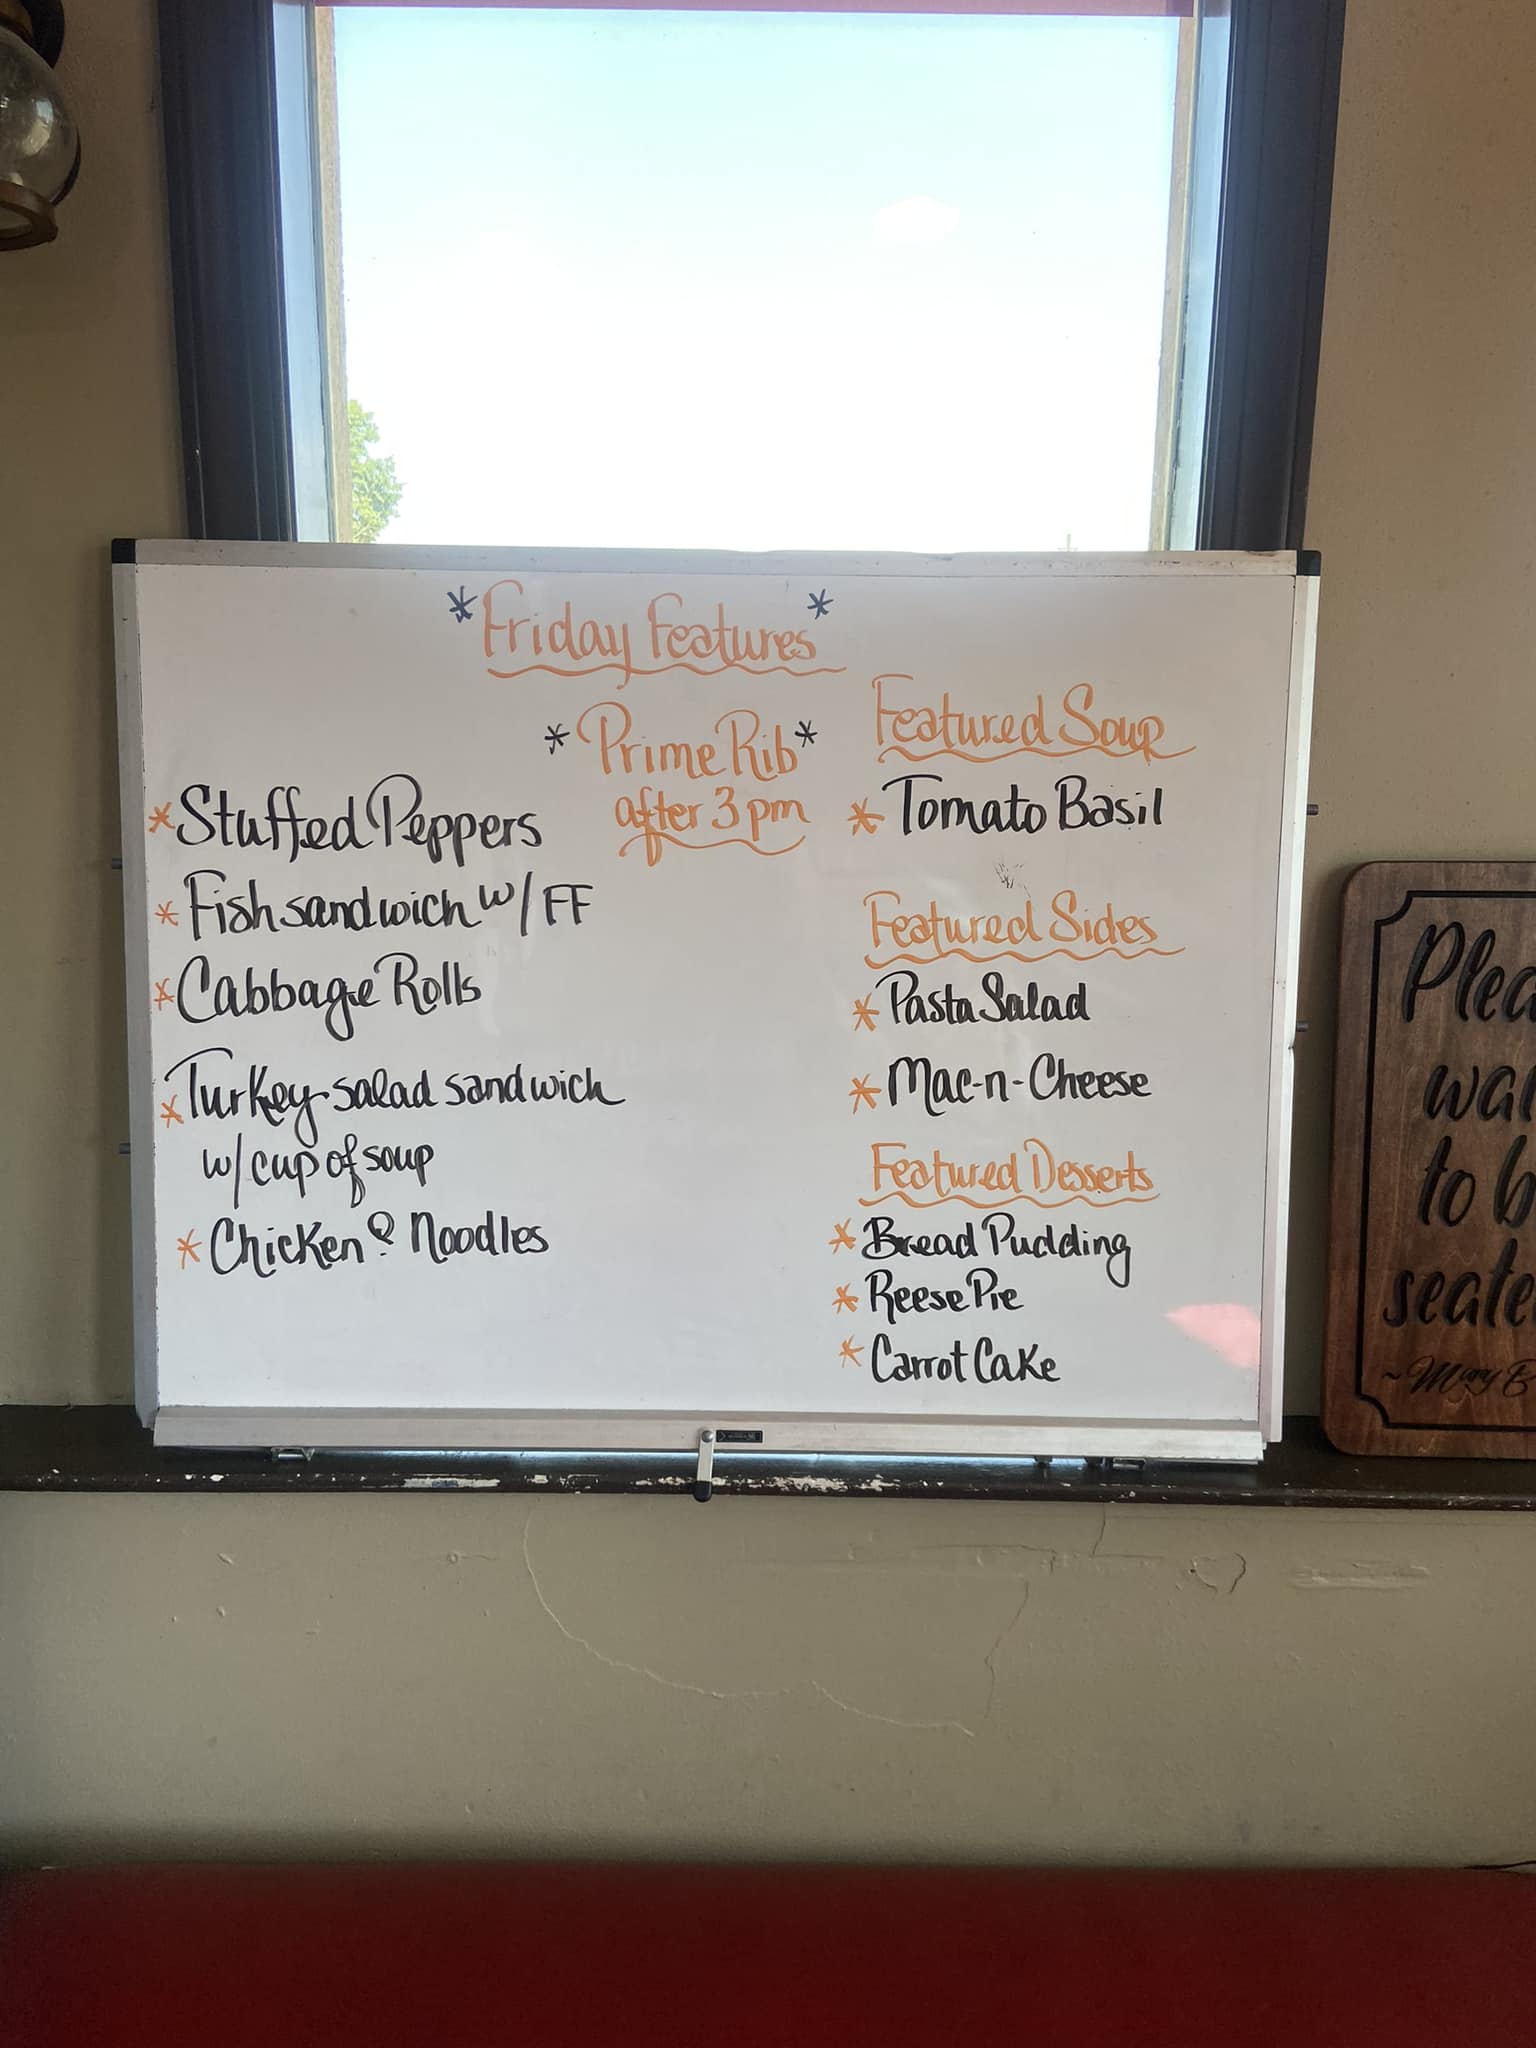 *Friday Features*
*Prime Rib*
after 3pm
*Stuffed Peppers
*Fish sandwich w/ FF
*Cabbage Rolls
*Turkey salad sandwich
w/ cup of soup
*Chicken & Noodles
Featured Soup
*Tomato Basil
Featured Sides
*Pasta Salad
*Mac-n-Cheese
Featured Desserts
*Bread Pudding
*Reese Pie
*Carrot Cake
Plea
wai
to b
seate
~Mary B